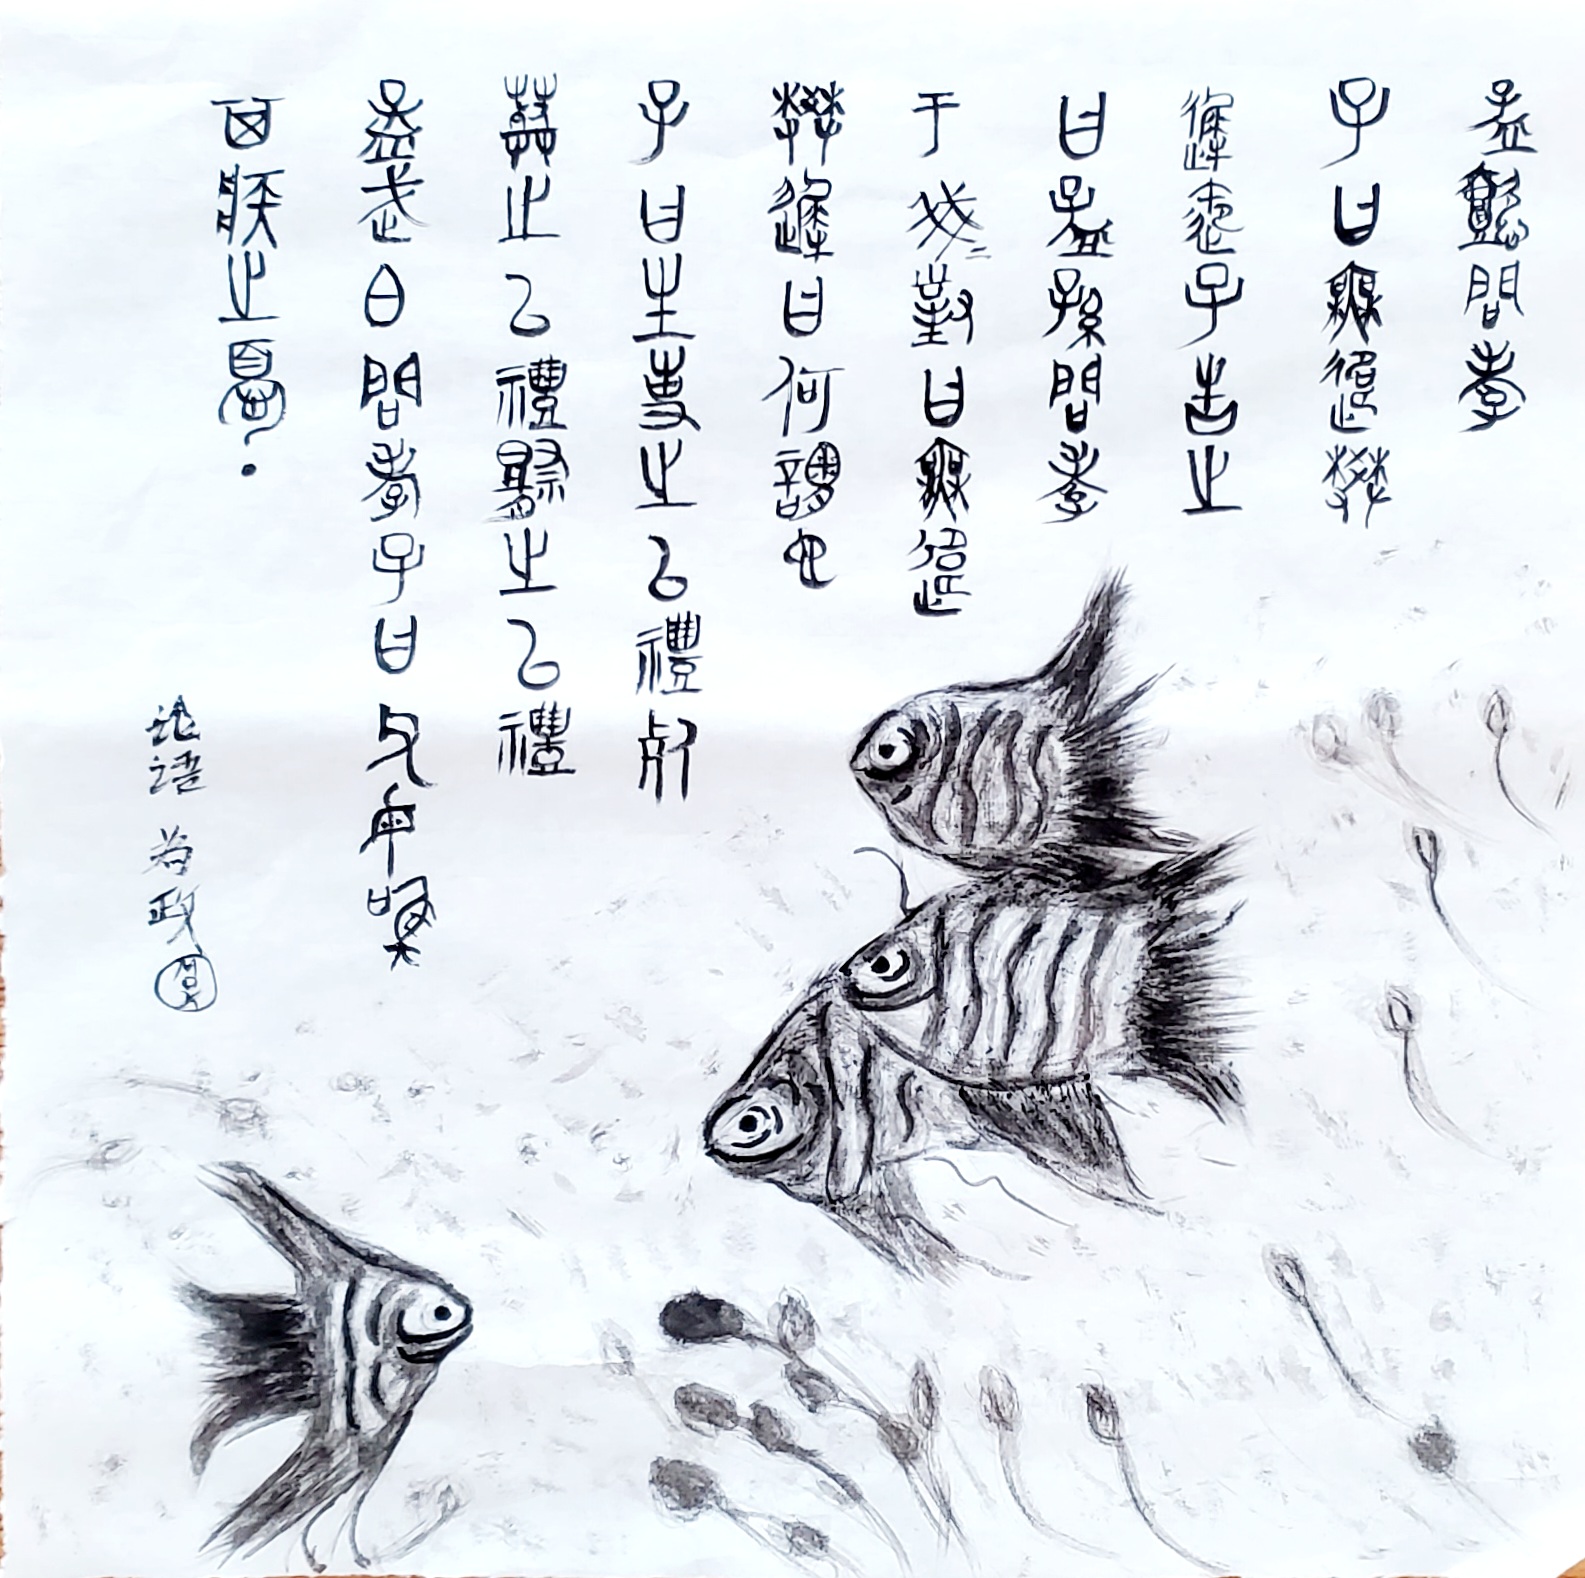 孟懿問孝
子曰無違樊
遲御子告之
曰孟孫問孝
于我=對曰無違
樊遲曰何謂也
子曰生事之以禮死
葬之以禮祭之以禮
孟武白問孝子曰父母唯
其疾之憂.
论语 为政